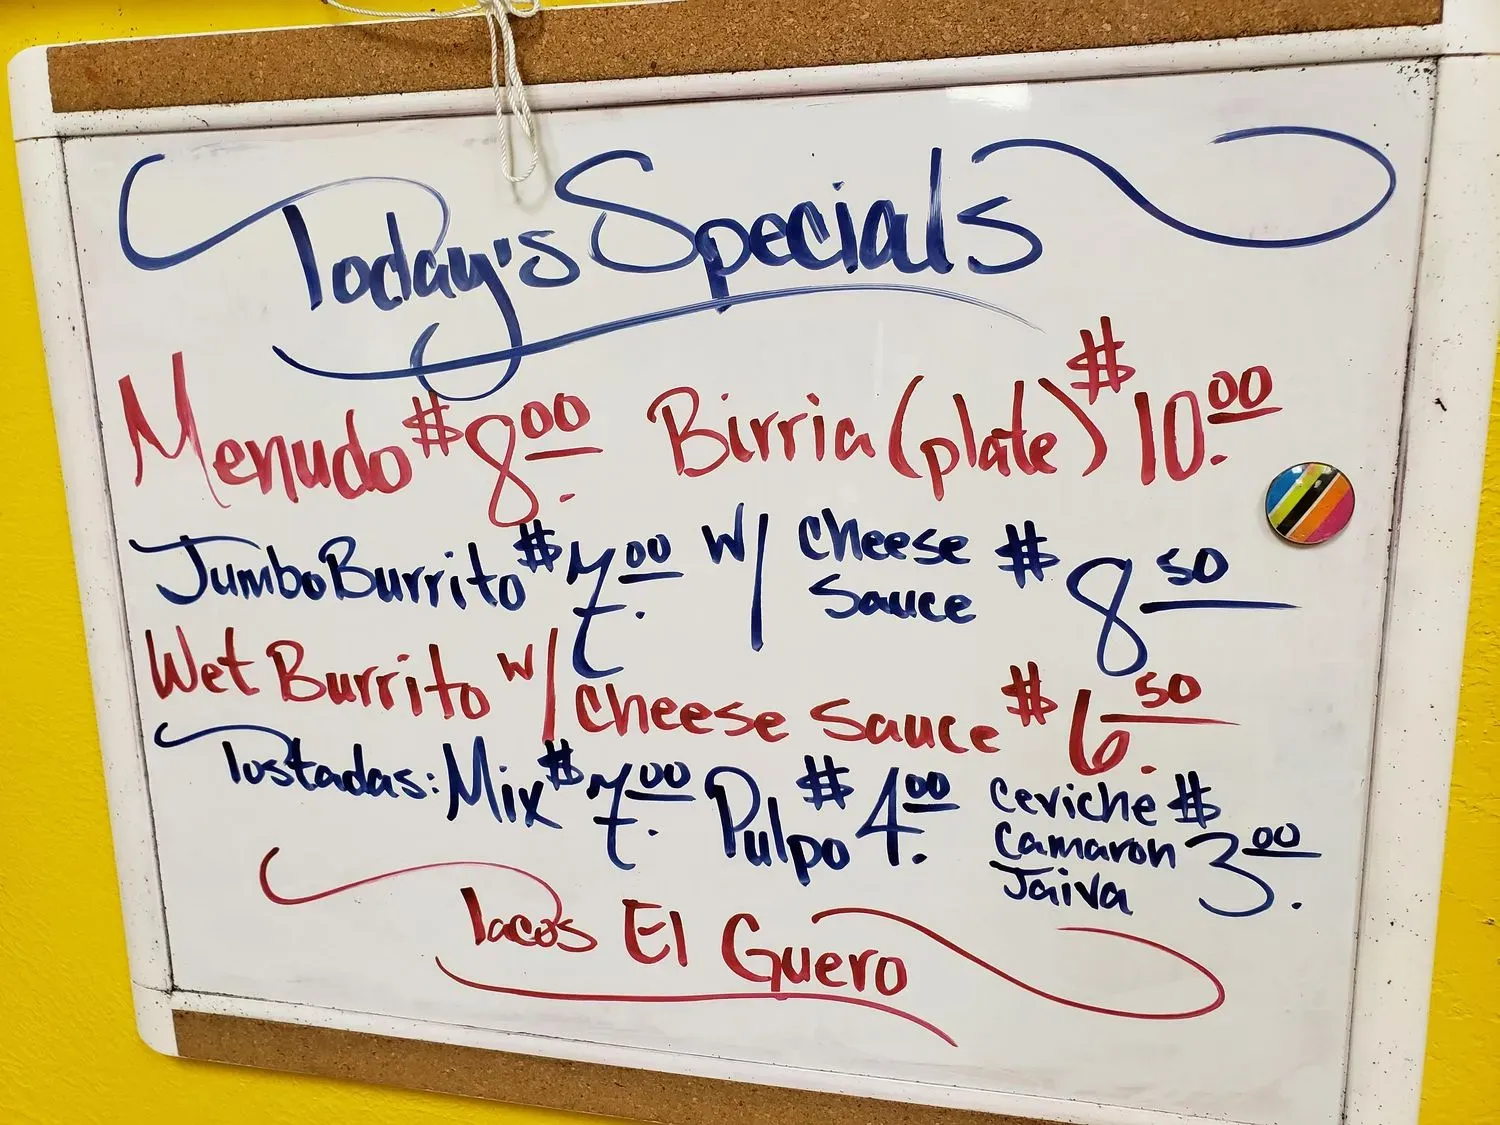 Today's Specials
Menudo $8.00 Birria (plate) $10.00
Jumbo Burrito $7.00 w/ Cheese Sauce $8.50
Wet Burrito w/ Cheese Sauce $6.50
Tostadas: Mix $7.00 Pulpo $4.00 Ceviche Camaron Jaiva $3.00
Tacos El Guero